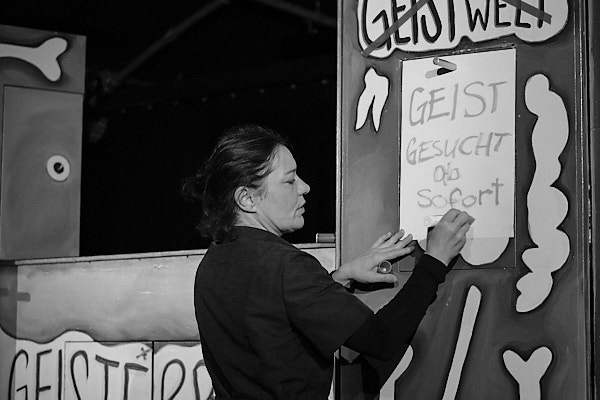 GEISTWELT
GEIST
GESUCHT
ab
Sofort
GEISTER